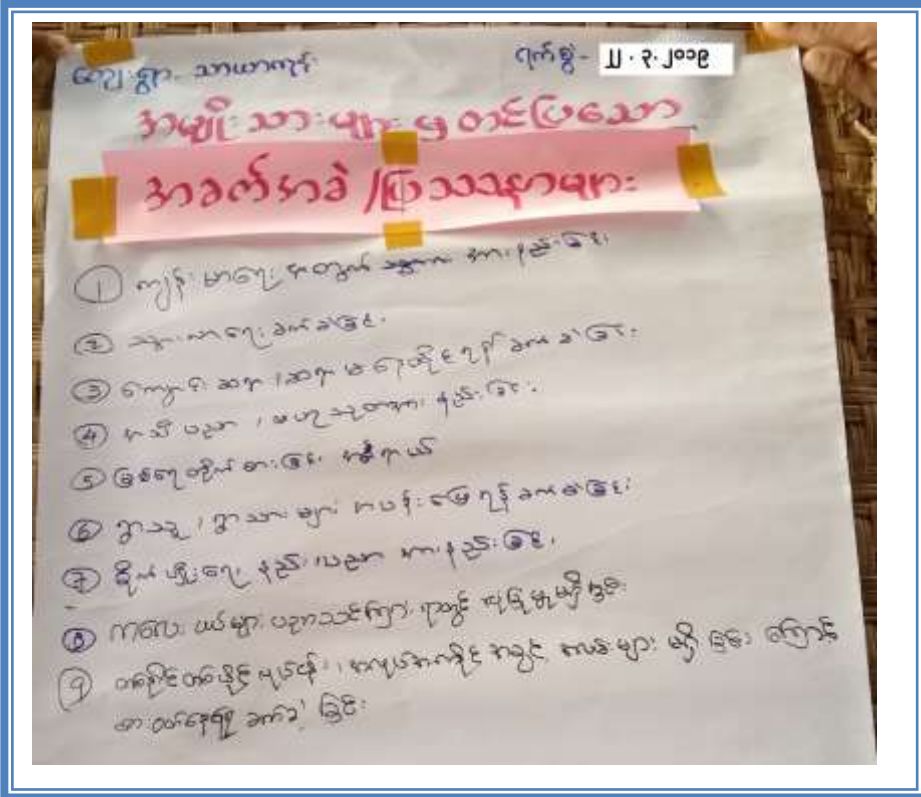 ကျေးရွာ - သာယာကုန်း
ရက်စွဲ - ၂၂ . ၃ . ၂၀၁၉
အမျိုးသားများမှ တင်ပြသော
အခက်အခဲ / ပြဿနာများ
① ကျန်းမာရေး အတွက် အားနည်းခြင်း
② သွားလာရေး ခက်ခဲခြင်း .
③ ကျောင်း ဆရာ / ဆရာမ နေထိုင်ရန် ခက်ခဲခြင်း
④ အသိပညာ / ဗဟုသုတအား နည်းခြင်း .
⑤ မြစ်ရေတိုက်စားခြင်း အန္တရာယ်
⑥ ရွာသူ / ရွာသားများ အပန်းဖြေရန် ခက်ခဲခြင်း
⑦ စိုက်ပျိုးရေး နည်းပညာ အားနည်းခြင်း .
⑧ ကလေးငယ်များ ပညာသင်ကြားရာတွင်
⑨ တစ်နိုင်တစ်ပိုင် အလုပ်အကိုင် အခွင့်အလမ်းများ မရှိခြင်းကြောင့်
စားဝတ်နေရေး ခက်ခဲခြင်း